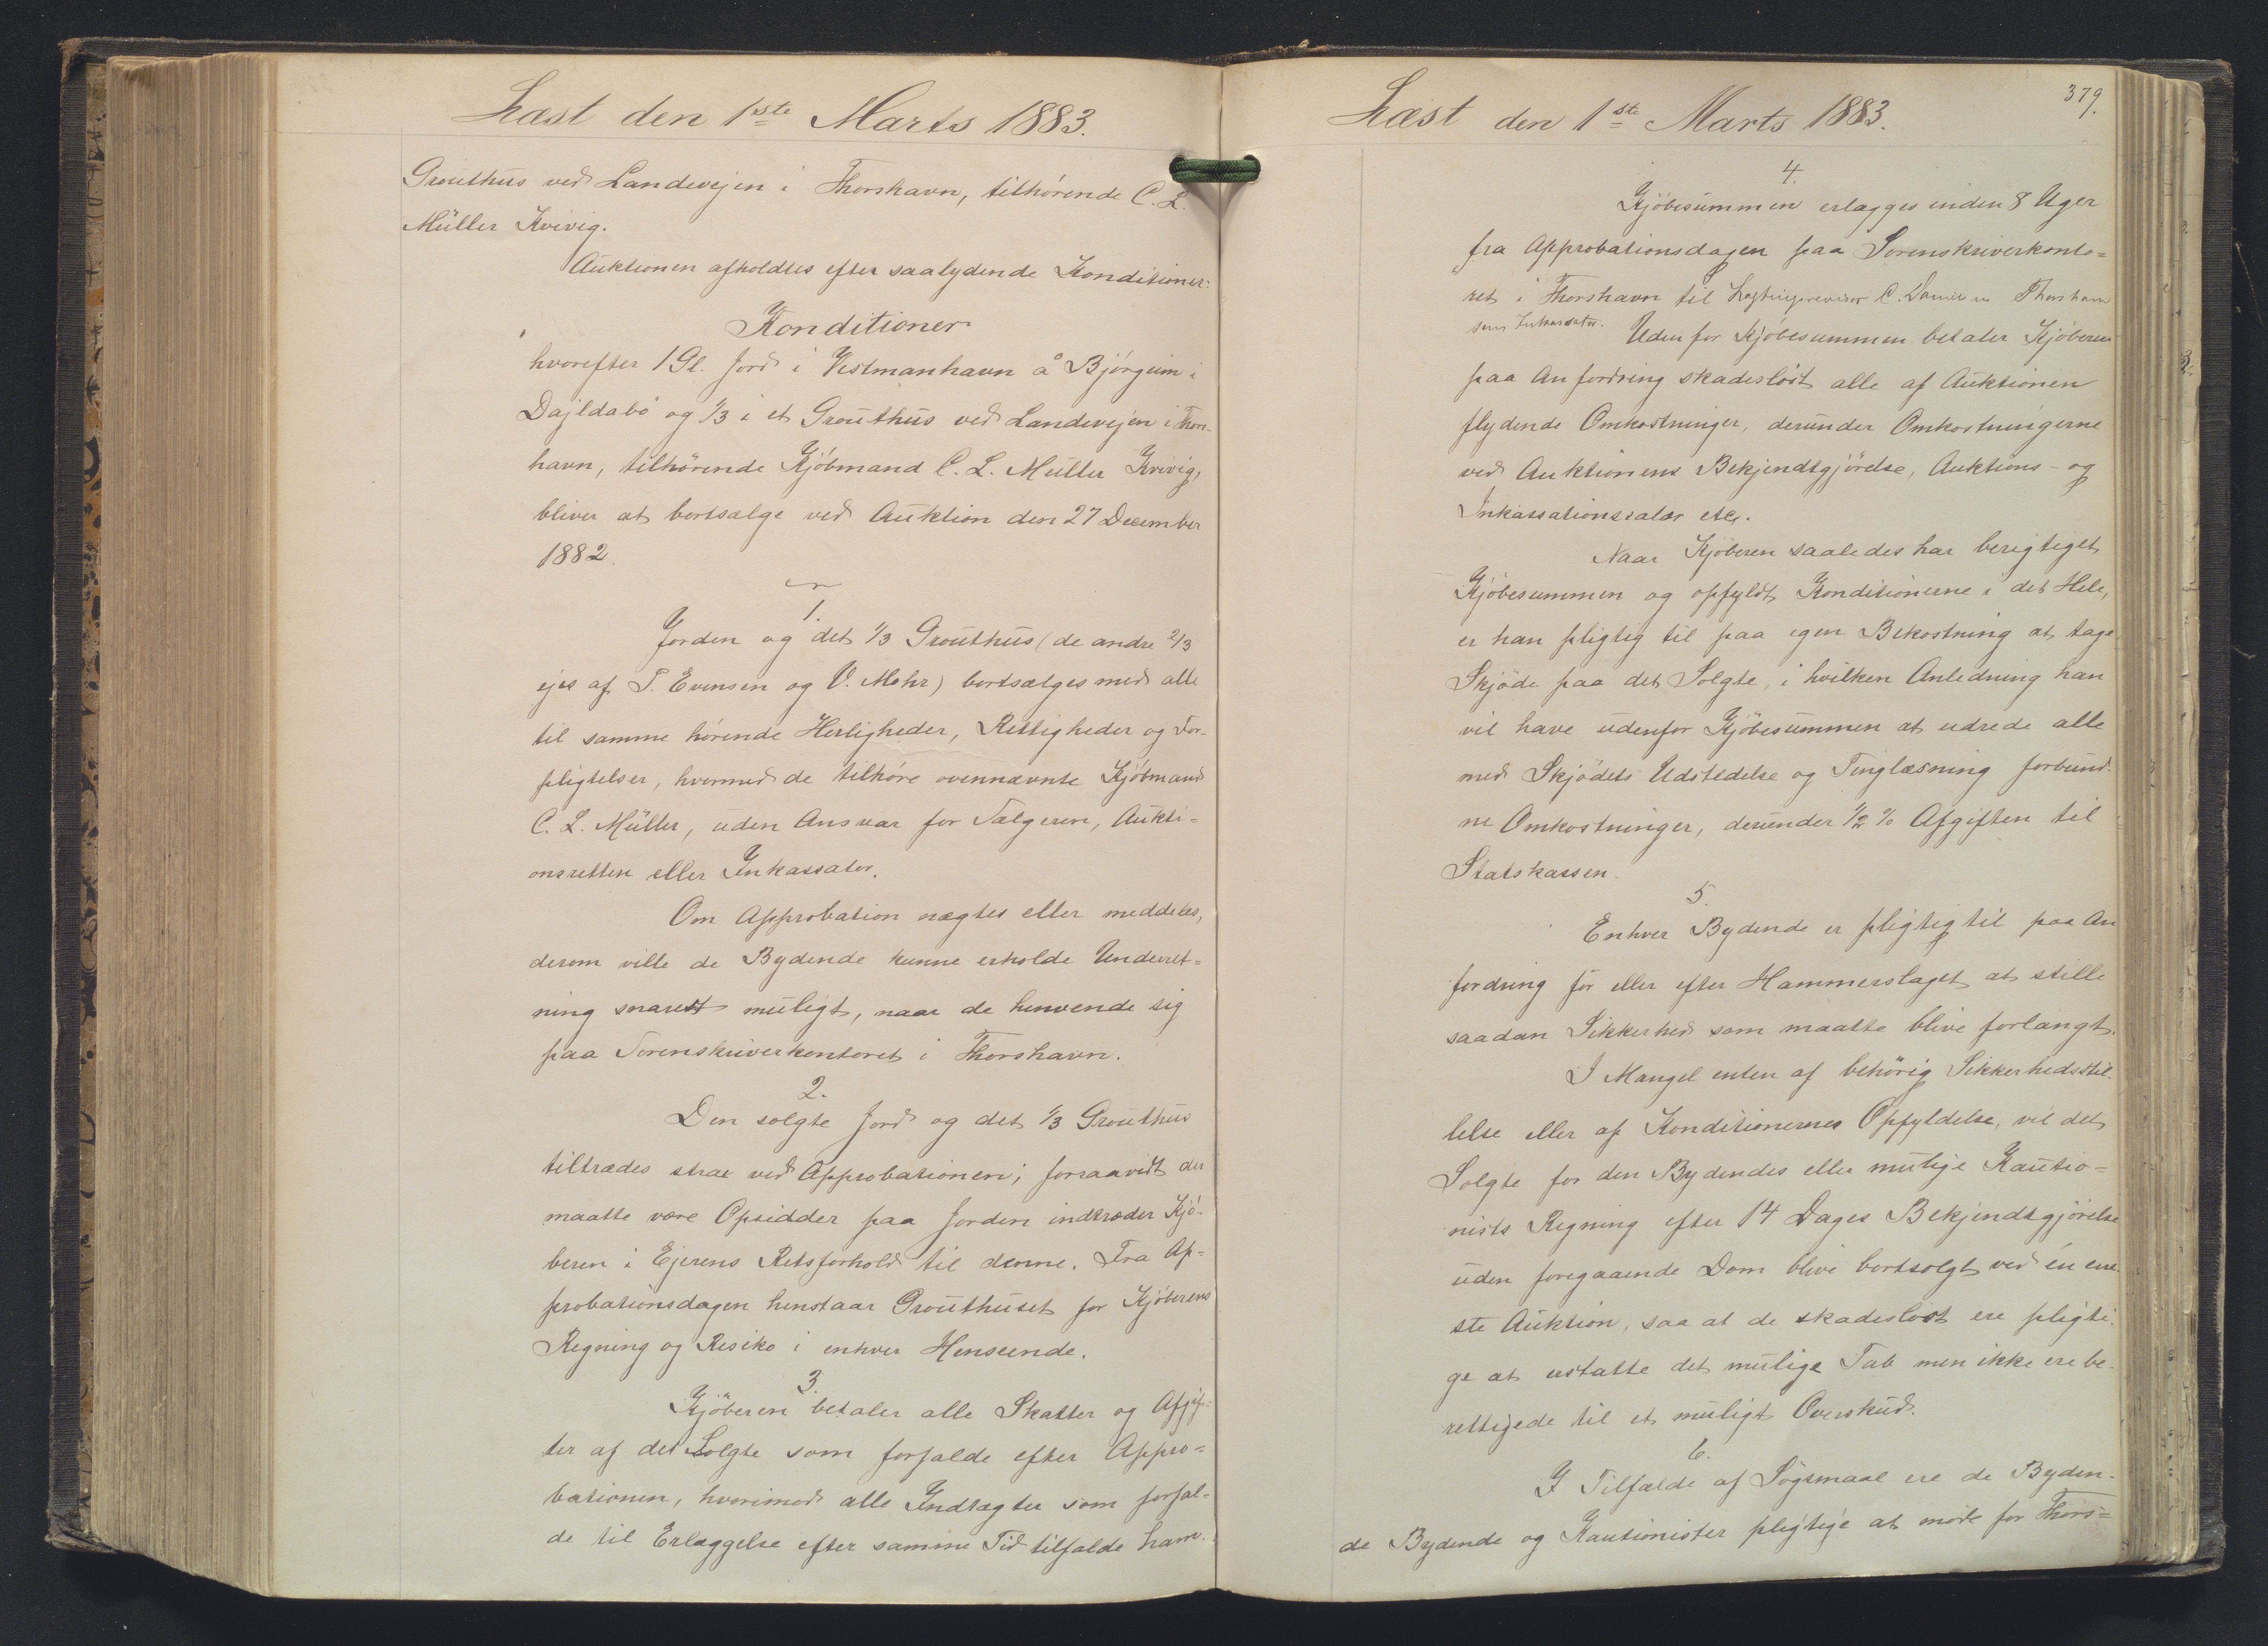 Læst den 1ste Marts 1883.
Grouthus ved Landevejen i Thorshavn, tilhørende C. L.
Müller Kvivig.
Auktionen afholdtes efter saalydende Konditioner:
Konditioner
hvorefter 1 Gl. Jord i Vestmanhavn å Bjørgum i
Dajldabö og 1/3 i et Grouthus ved Landevejen i Thors-
havn, tilhörende Kjöbmand C. L. Müller Kvivig,
bliver at bortsælge ved Auktion den 27 December
1882.
1.
Jorden og det 1/3 Grouthus (de andre 2/3
ejes af P. Evensen og V. Mohr) bortsælges med alle
til samme hørende Herligheder, Rettigheder og For-
pligtelser, hvormed de tilhöre ovennævnte Kjöbmand
C. L. Müller, uden Ansvar for Sælgeren, Aukti-
onsretten eller Inkassator.
Om Approbation nægtes eller meddeles,
derom ville de Bydende kunne erholde Underret-
ning snarest muligt, naar de henvende sig
paa Sorenskriverkontoret i Thorshavn.
2.
Den solgte Jord og det 1/3 Grouthus
tiltrædes strax ved Approbationen; forsaavidt der
maatte være Opsidder paa Jorden indtræder Kjö-
beren i Ejerens Retsforhold til denne. Fra Ap-
probationsdagen henstaar Grouthuset for Kjöberens
Regning og Risiko i enhver Henseende.
3.
Kjöberen betaler alle Skatter og Afgif-
ter af det Solgte som forfalde efter Appro-
bationen, hvorimod alle Indtægter som forfal-
de til Erlæggelse efter samme Tid tilfalde ham.
Læst den 1ste Marts 1883.
379.
4.
Kjöbesummen erlægges inden 8 Uger
fra Approbationsdagen paa Sorenskriverkonto-
ret i Thorshavn til Lagtingsrevisor C. Danielsen Thorshavn
som Inkassator. Uden for Kjöbesummen betaler Kjöberen
paa Anfordring skadeslöst alle af Auktionen
flydende Omkostninger, derunder Omkostningerne
ved Auktionens Bekjendtgjörelse, Auktions- og
Inkassationssalær etc.
Naar Kjöberen saaledes har berigtiget
Kjöbesummen og opfyldt Konditionerne i det Hele,
er han pligtig til paa egen Bekostning at tage
Skjöde paa det Solgte, i hvilken Anledning han
vil have udenfor Kjöbesummen at udrede alle
med Skjödets Udstedelse og Tinglæsning forbund-
ne Omkostninger, derunder 1/2 % Afgiften til
Statskassen.
5.
Enhver Bydende er pligtig til paa An
fordring för eller efter Hammerslaget at stille
saadan Sikkerhed som maatte blive forlangt.
I Mangel enten af behörig Sikkerhedsstil-
lelse eller af Konditionernes Opfyldelse, vil det
Solgte for den Bydendes eller mulige Kautio-
nists Regning efter 14 Dages Bekjendtgjörelse
uden foregaaende Dom blive bortsolgt ved én ene-
ste Auktion, saa at de skadeslost ere pligti-
ge at erstatte det mulige Tab men ikke ere be-
rettigede til et muligt Overskud.
6.
I Tilfælde af Sögsmaal ere de Byden-
de Bydende og Kautionister pligtige at möde for Thors-